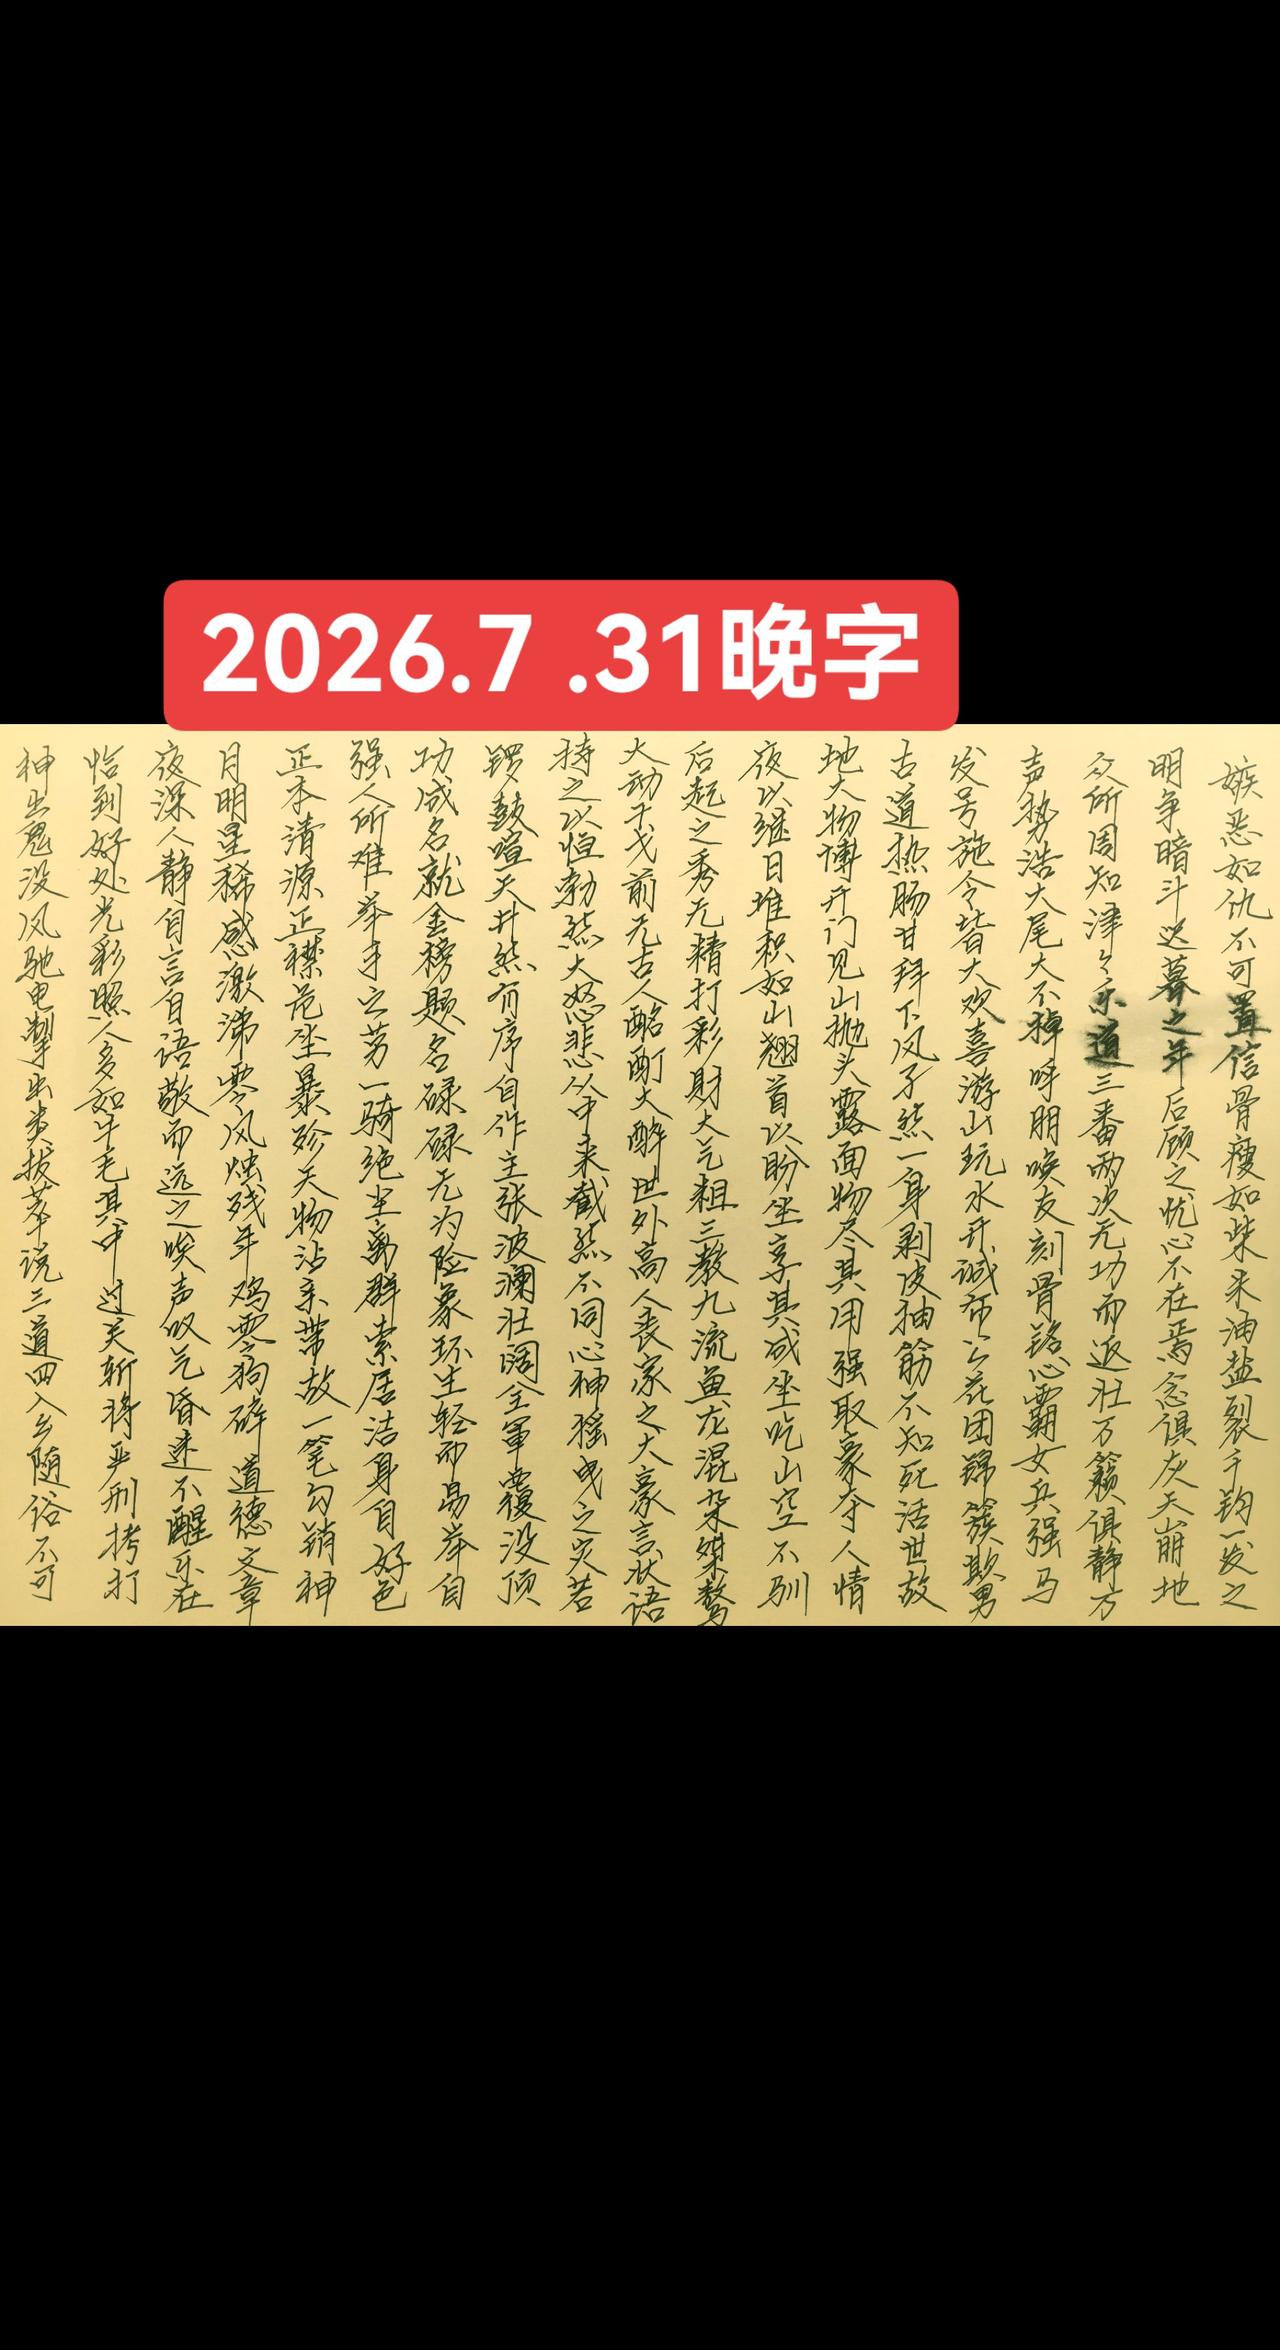 2026.7 .31晚字
嫉恶如仇不可置信骨瘦如柴米油盐裂千钧一发之
明争暗斗迟暮之年后顾之忧心不在焉念俱灰天崩地
众所周知津々乐道三番两次无功而返壮万籁俱静方
声势浩大尾大不掉呼朋唤友刻骨铭心霸女兵强马
发号施令皆大欢喜游山玩水开诚布公花团锦簇欺男
古道热肠甘拜下风孑然一身剥皮抽筋不知死活世故
地大物博开门见山抛头露面物尽其用强取豪夺人情
夜以继日堆积如山翘首以盼坐享其成坐吃山空不驯
后起之秀无精打彩财大气粗三教九流鱼龙混杂桀骜
大动干戈前无古人酩酊大醉世外高人丧家之犬豪言状语
持之以恒勃然大怒悲从中来截然不同心神摇曳之灾若
锣鼓喧天井然有序自作主张波澜壮阔全军覆没顶
功成名就金榜题名碌碌无为险象环生轻而易举自
强人所难举手之劳一骑绝尘离群索居洁身自好色
正本清源正襟危坐暴殄天物沾亲带故一笔勾销神
月明星稀感激涕零风烛残年鸡零狗碎道德文章
夜深人静自言自语敬而远之唉声叹气昏迷不醒乐在
恰到好处光彩照人多如牛毛其中过关斩将严刑拷打
神出鬼没风驰电掣出类拔萃说三道四入乡随俗不可